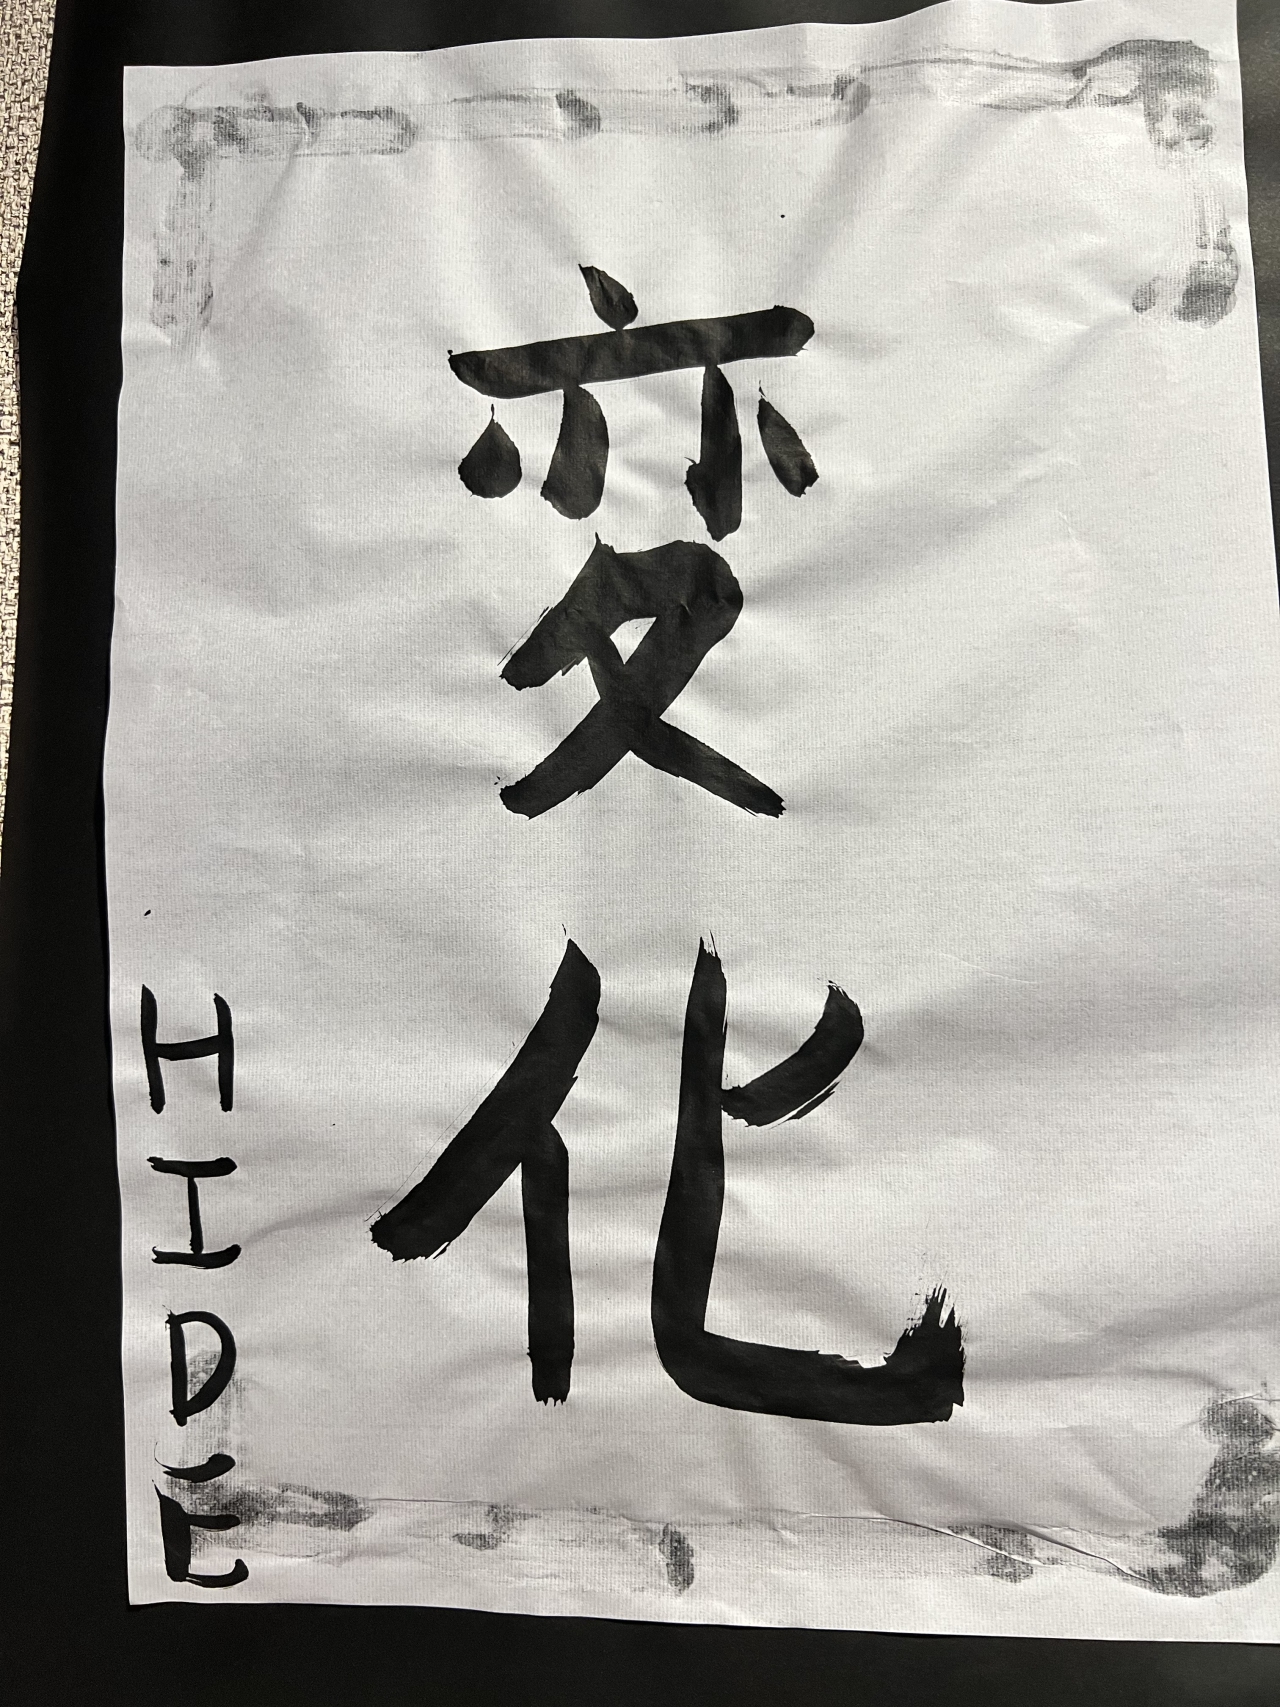 変化
HIDE